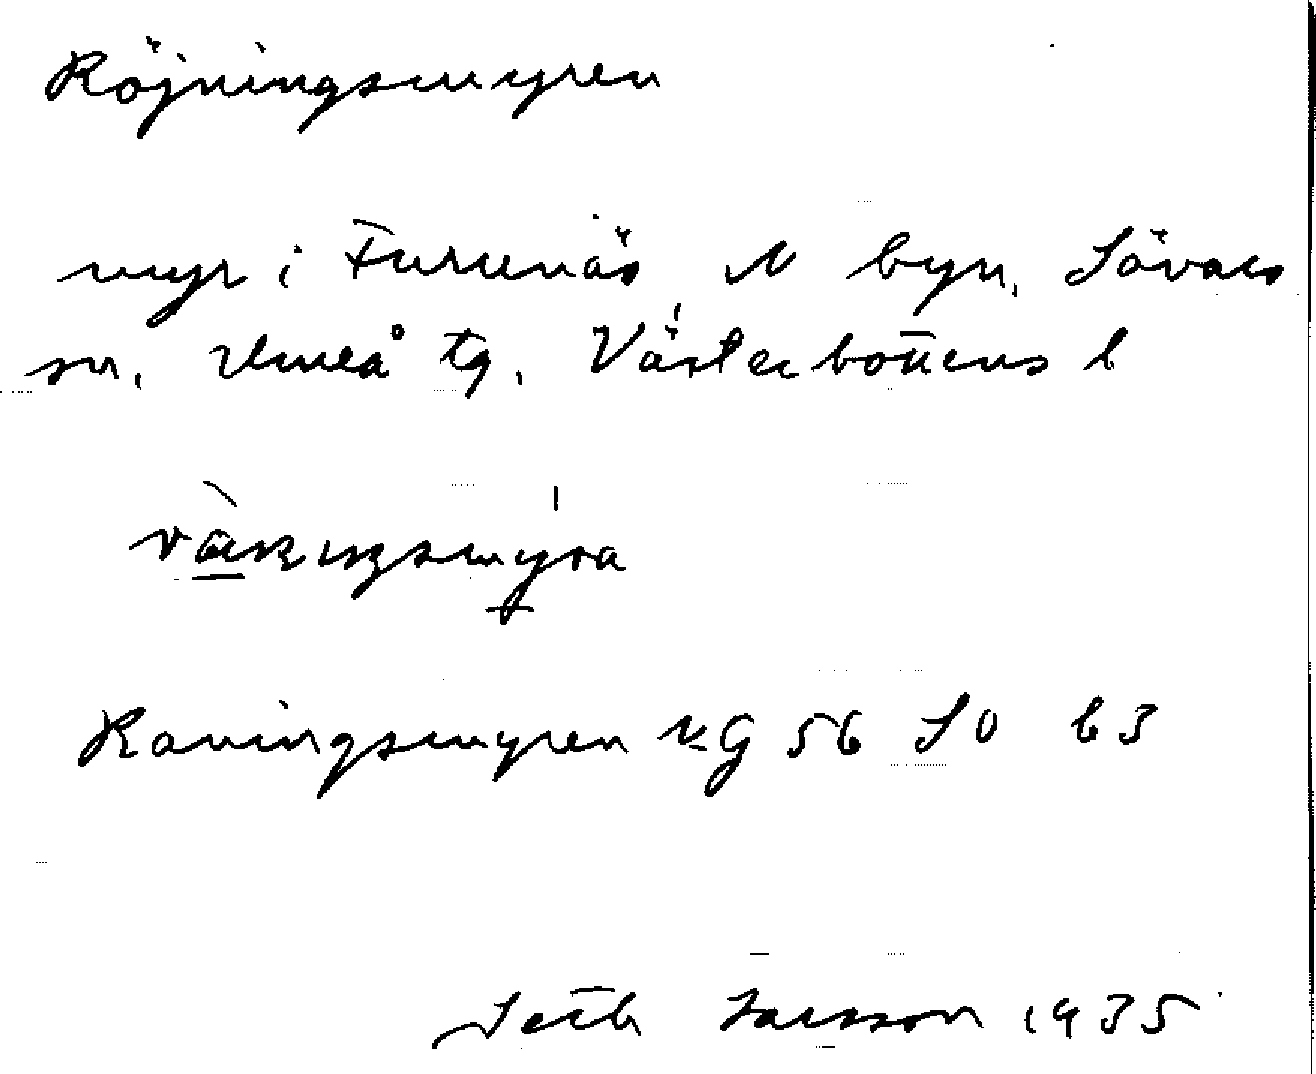 Röjningsmyren
myr i Furunäs, N byn, Sävars
sn, Umeå tg, Västerbottens l
Raningsmyren kG 56 SO b3
Seth Larsson 1935